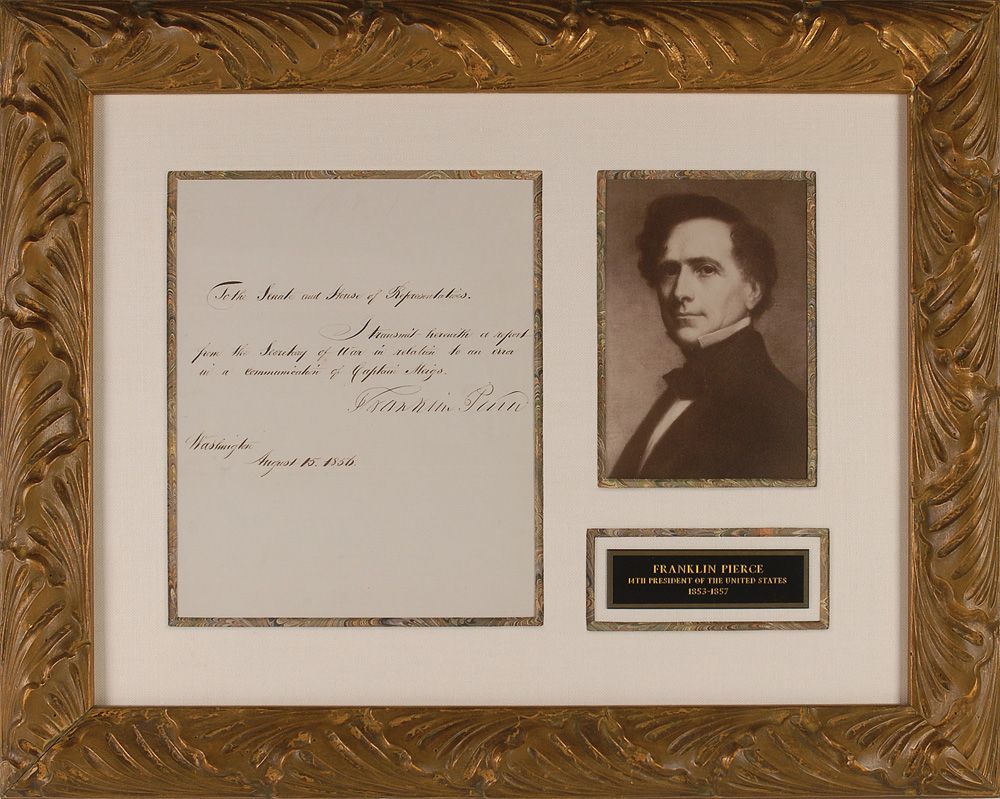 To the Senate and House of Representatives.
I transmit herewith a report
from the Secretary of War in relation to an error
in a communication of Captain Meigs.
Franklin Pierce
Washington
August 15. 1856.
FRANKLIN PIERCE
14TH PRESIDENT OF THE UNITED STATES
1853-1857